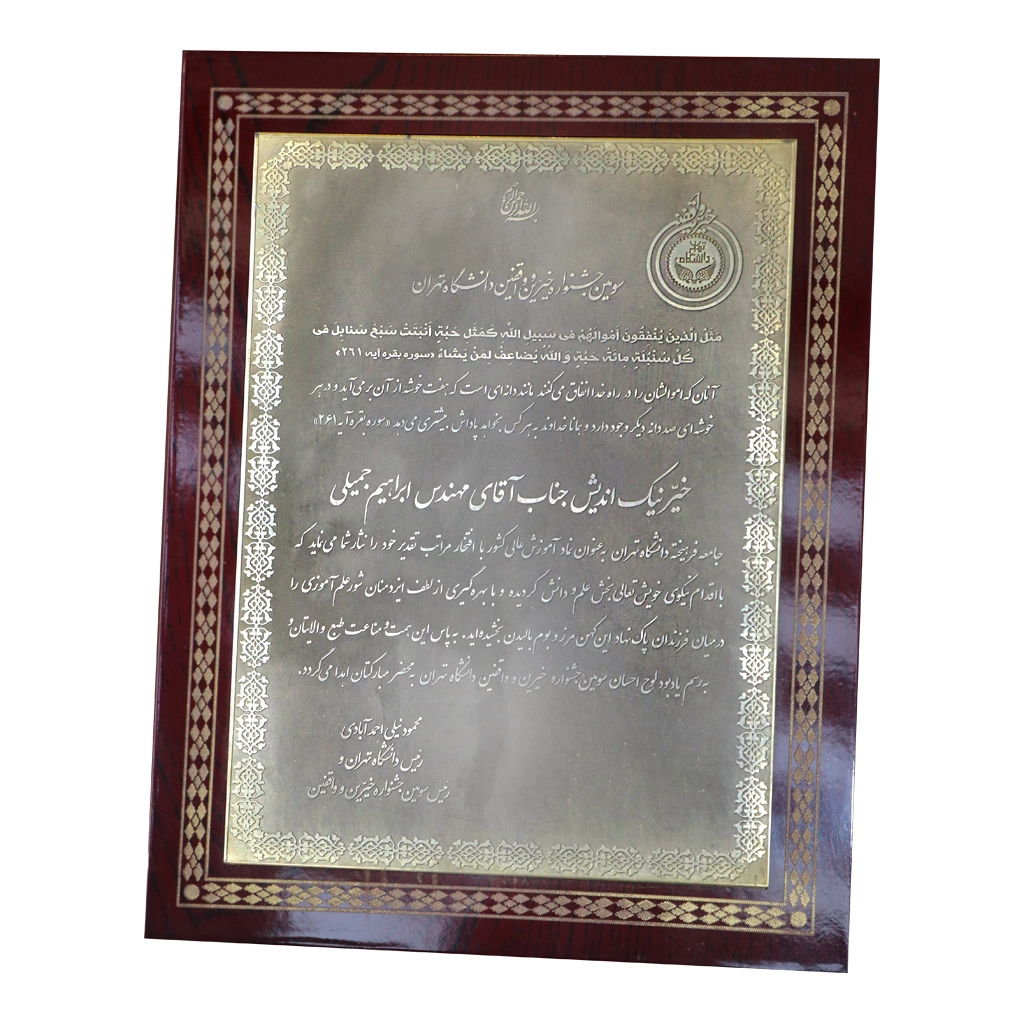 بسم الله الرحمن الرحیم
خیرین و واقفین
دانشگاه تهران
سومین جشنواره خیرین و واقفین دانشگاه تهران
مَثَلُ الَّذینَ یُنْفِقُونَ أَمْوالَهُمْ فی سَبیلِ اللَّهِ کَمَثَلِ حَبَّةٍ أَنْبَتَتْ سَبْعَ سَنابِلَ فی
کُلِّ سُنْبُلَةٍ مِائَةُ حَبَّةٍ وَ اللَّهُ یُضاعِفُ لِمَنْ یَشاءُ «سوره بقره آیه ۲۶۱»
آنان که اموالشان را در راه خدا انفاق می‌کنند مانند دانه‌ای است که هفت خوشه از آن بر می‌آید و در هر
خوشه‌ای صد دانه دیگر وجود دارد و همانا خداوند به هر کس بخواهد پاداش بیشتری می‌دهد «سوره بقره آیه ۲۶۱»
خیّر نیک اندیش جناب آقای مهندس ابراهیم جمیلی
جامعه فرهیخته دانشگاه تهران به عنوان نماد آموزش عالی کشور با افتخار مراتب تقدیر خود را نثار شما می‌نماید که
با اقدام نیکوی خویش تعالی بخش علم و دانش گردیده و با بهره گیری از لطف ایزد منان شور علم آموزی را
در میان فرزندان پاک نهاد این کهن مرز و بوم بالیدن بخشیده‌اید. به پاس این همت و مناعت طبع والایتان و
به رسم یادبود لوح احسان سومین جشنواره خیرین و واقفین دانشگاه تهران به محضر مبارکتان اهدا می‌گردد.
محمود نیلی احمدآبادی
رئیس دانشگاه تهران و
رئیس سومین جشنواره خیّرین و واقفین